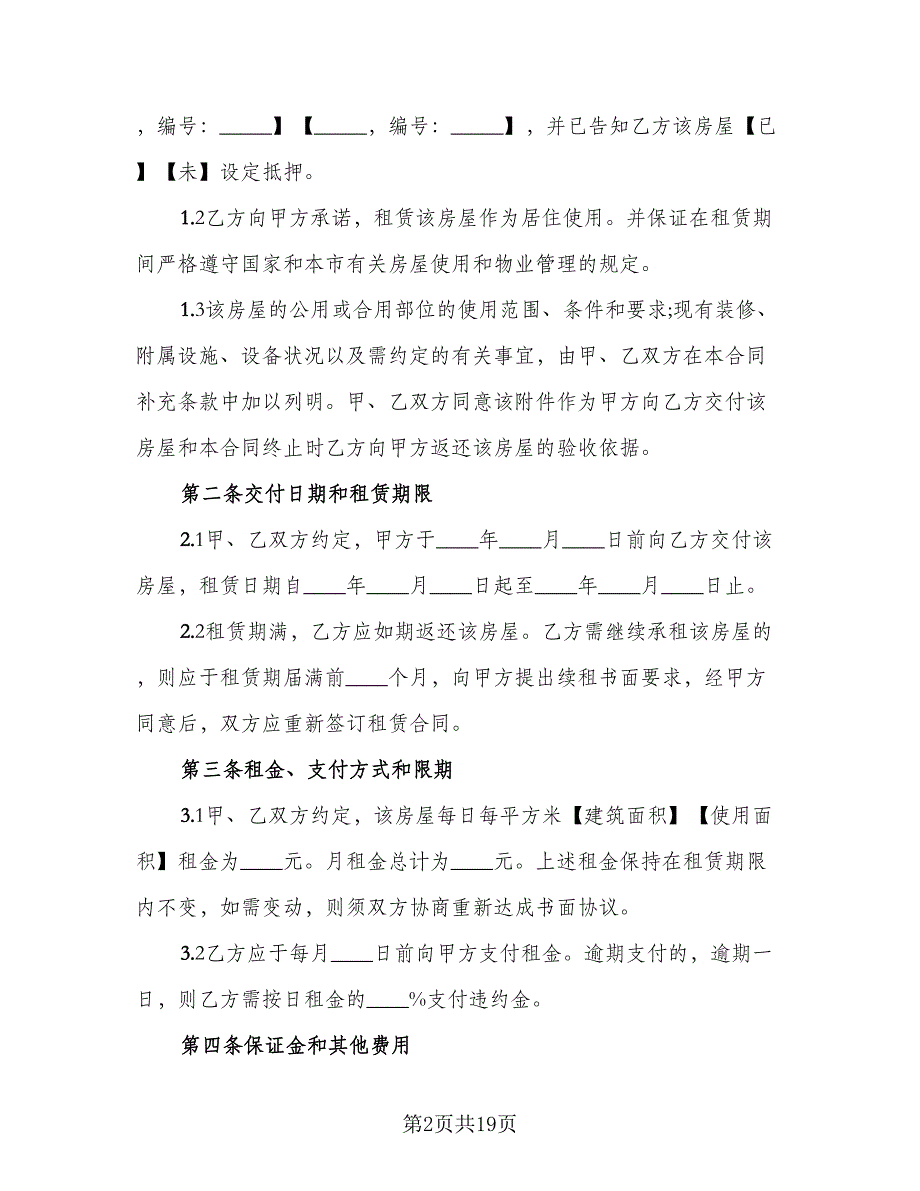 ，编号：_____】【_____，编号：_____】，并已告知乙方该房屋【已
】【未】设定抵押。
1.2乙方向甲方承诺，租赁该房屋作为居住使用。并保证在租赁期
间严格遵守国家和本市有关房屋使用和物业管理的规定。
1.3该房屋的公用或合用部位的使用范围、条件和要求;现有装修、
附属设施、设备状况以及需约定的有关事宜，由甲、乙双方在本合同
补充条款中加以列明。甲、乙双方同意该附件作为甲方向乙方交付该
房屋和本合同终止时乙方向甲方返还该房屋的验收依据。
第二条交付日期和租赁期限
2.1甲、乙双方约定，甲方于____年____月____日前向乙方交付该
房屋，租赁日期自____年____月____日起至____年____月____日止。
2.2租赁期满，乙方应如期返还该房屋。乙方需继续承租该房屋的
，则应于租赁期届满前____个月，向甲方提出续租书面要求，经甲方
同意后，双方应重新签订租赁合同。
第三条租金、支付方式和限期
3.1甲、乙双方约定，该房屋每日每平方米【建筑面积】【使用面
积】租金为____元。月租金总计为____元。上述租金保持在租赁期限
内不变，如需变动，则须双方协商重新达成书面协议。
3.2乙方应于每月____日前向甲方支付租金。逾期支付的，逾期一
日，则乙方需按日租金的____%支付违约金。
第四条保证金和其他费用
第2页共19页